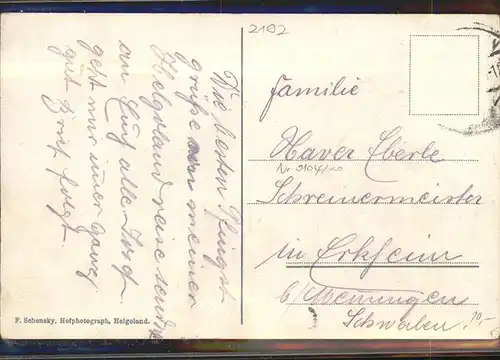 2192
Die besten Pfingst
grüße von meiner
Helgoland reise sendet
an Euch alle Josef.
geht mir immer ganz
gut Brief folgt.
F. Schensky, Hofphotograph, Helgoland.
Familie
Xaver Eberle
Nr. 9104/20
Schreinermeister
in Erkheim
b/Memmingen
Schwaben
10,-